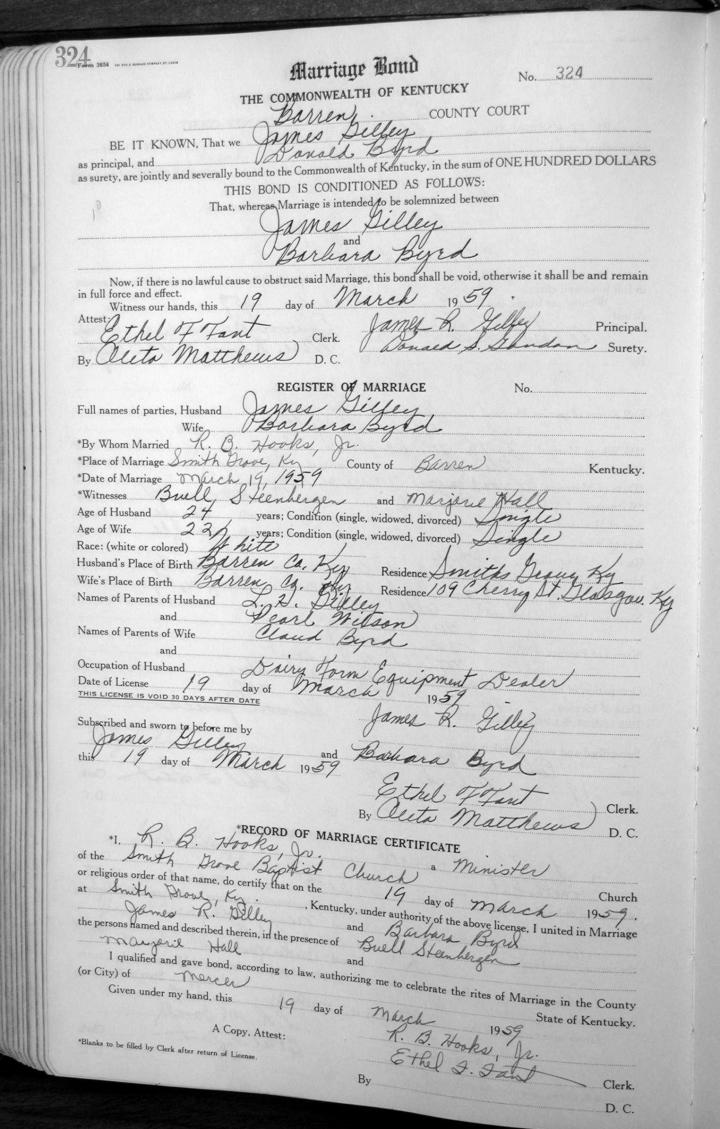 324
Form 2654
Marriage Bond
No. 324
THE COMMONWEALTH OF KENTUCKY
Barren COUNTY COURT
BE IT KNOWN, That we James Gilley
as principal, and Donald Byrd
as surety, are jointly and severally bound to the Commonwealth of Kentucky, in the sum of ONE HUNDRED DOLLARS
THIS BOND IS CONDITIONED AS FOLLOWS:
That, whereas Marriage is intended to be solemnized between
James Gilley
and
Barbara Byrd
Now, if there is no lawful cause to obstruct said Marriage, this bond shall be void, otherwise it shall be and remain
in full force and effect.
Witness our hands, this 19 day of March 1959.
Attest: James R. Gilley Principal.
Ethel F Fant Clerk.
By Oleta Matthews D. C. Donald S. Surety.
REGISTER OF MARRIAGE No.
Full names of parties, Husband James Gilley
Wife Barbara Byrd
*By Whom Married R. B. Hooks, Jr.
*Place of Marriage Smith Grove, Ky County of Barren Kentucky.
*Date of Marriage March, 19, 1959
*Witnesses Buell Steenbergen and Marjorie Hall
Age of Husband 24 years; Condition (single, widowed, divorced) Single
Age of Wife 22 years; Condition (single, widowed, divorced) Single
Race: (white or colored) White
Husband's Place of Birth Barren Co. Ky Residence Smiths Grove Ky
Wife's Place of Birth Barren Co. Ky Residence 109 Cherry St. Glasgow. Ky
Names of Parents of Husband L. H. Gilley
and Pearl Wilson
Names of Parents of Wife Claud Byrd
and
Occupation of Husband Dairy Farm Equipment Dealer
Date of License 19 day of March 1959
THIS LICENSE IS VOID 30 DAYS AFTER DATE
James R. Gilley
Subscribed and sworn to before me by
James Gilley and Barbara Byrd
this 19 day of March 1959
Ethel F Fant Clerk.
By Oleta Matthews D. C.
*RECORD OF MARRIAGE CERTIFICATE
*I, R. B. Hooks, Jr. a Minister
of the Smith Grove Baptist Church Church
or religious order of that name, do certify that on the 19 day of March 1959.
at Smith Grove, Ky. , Kentucky, under authority of the above license, I united in Marriage
James R. Gilley and Barbara Byrd
the persons named and described therein, in the presence of Buell Steenbergen
Marjorie Hall and
I qualified and gave bond, according to law, authorizing me to celebrate the rites of Marriage in the County
(or City) of Mercer State of Kentucky.
Given under my hand, this 19 day of March 1959
R. B. Hooks, Jr.
A Copy, Attest: Ethel F. Fant Clerk.
*Blanks to be filled by Clerk after return of License.
By D. C.